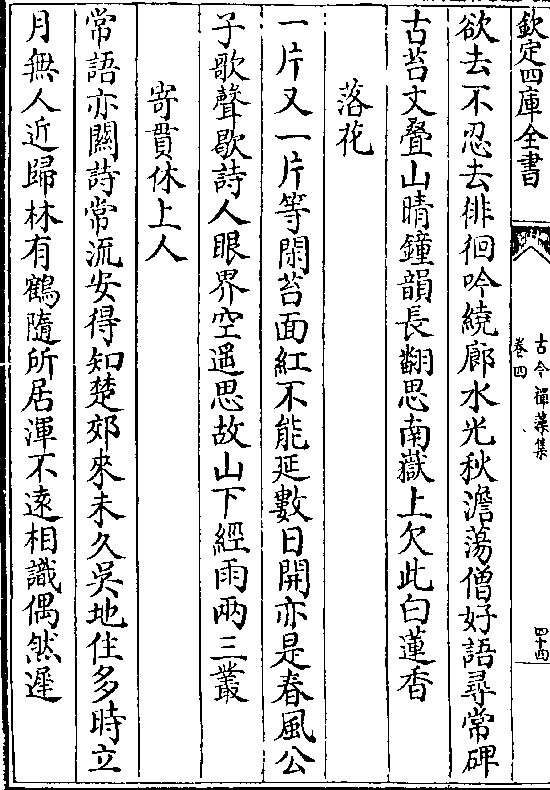 欽定四庫全書
古今禪藻集
卷四
四十四
欲去不忍去徘徊吟繞廊水光秋澹蕩僧好語尋常碑
古苔文疊山晴鐘韻長翻思南嶽上欠此白蓮香
落花
一片又一片等閒苔面紅不能延數日開亦是春風公
子歌聲歇詩人眼界空遥思故山下經雨兩三叢
寄貫休上人
常語亦關詩常流安得知楚郊來未久吳地住多時立
月無人近歸林有鶴隨所居渾不遠相識偶然遲